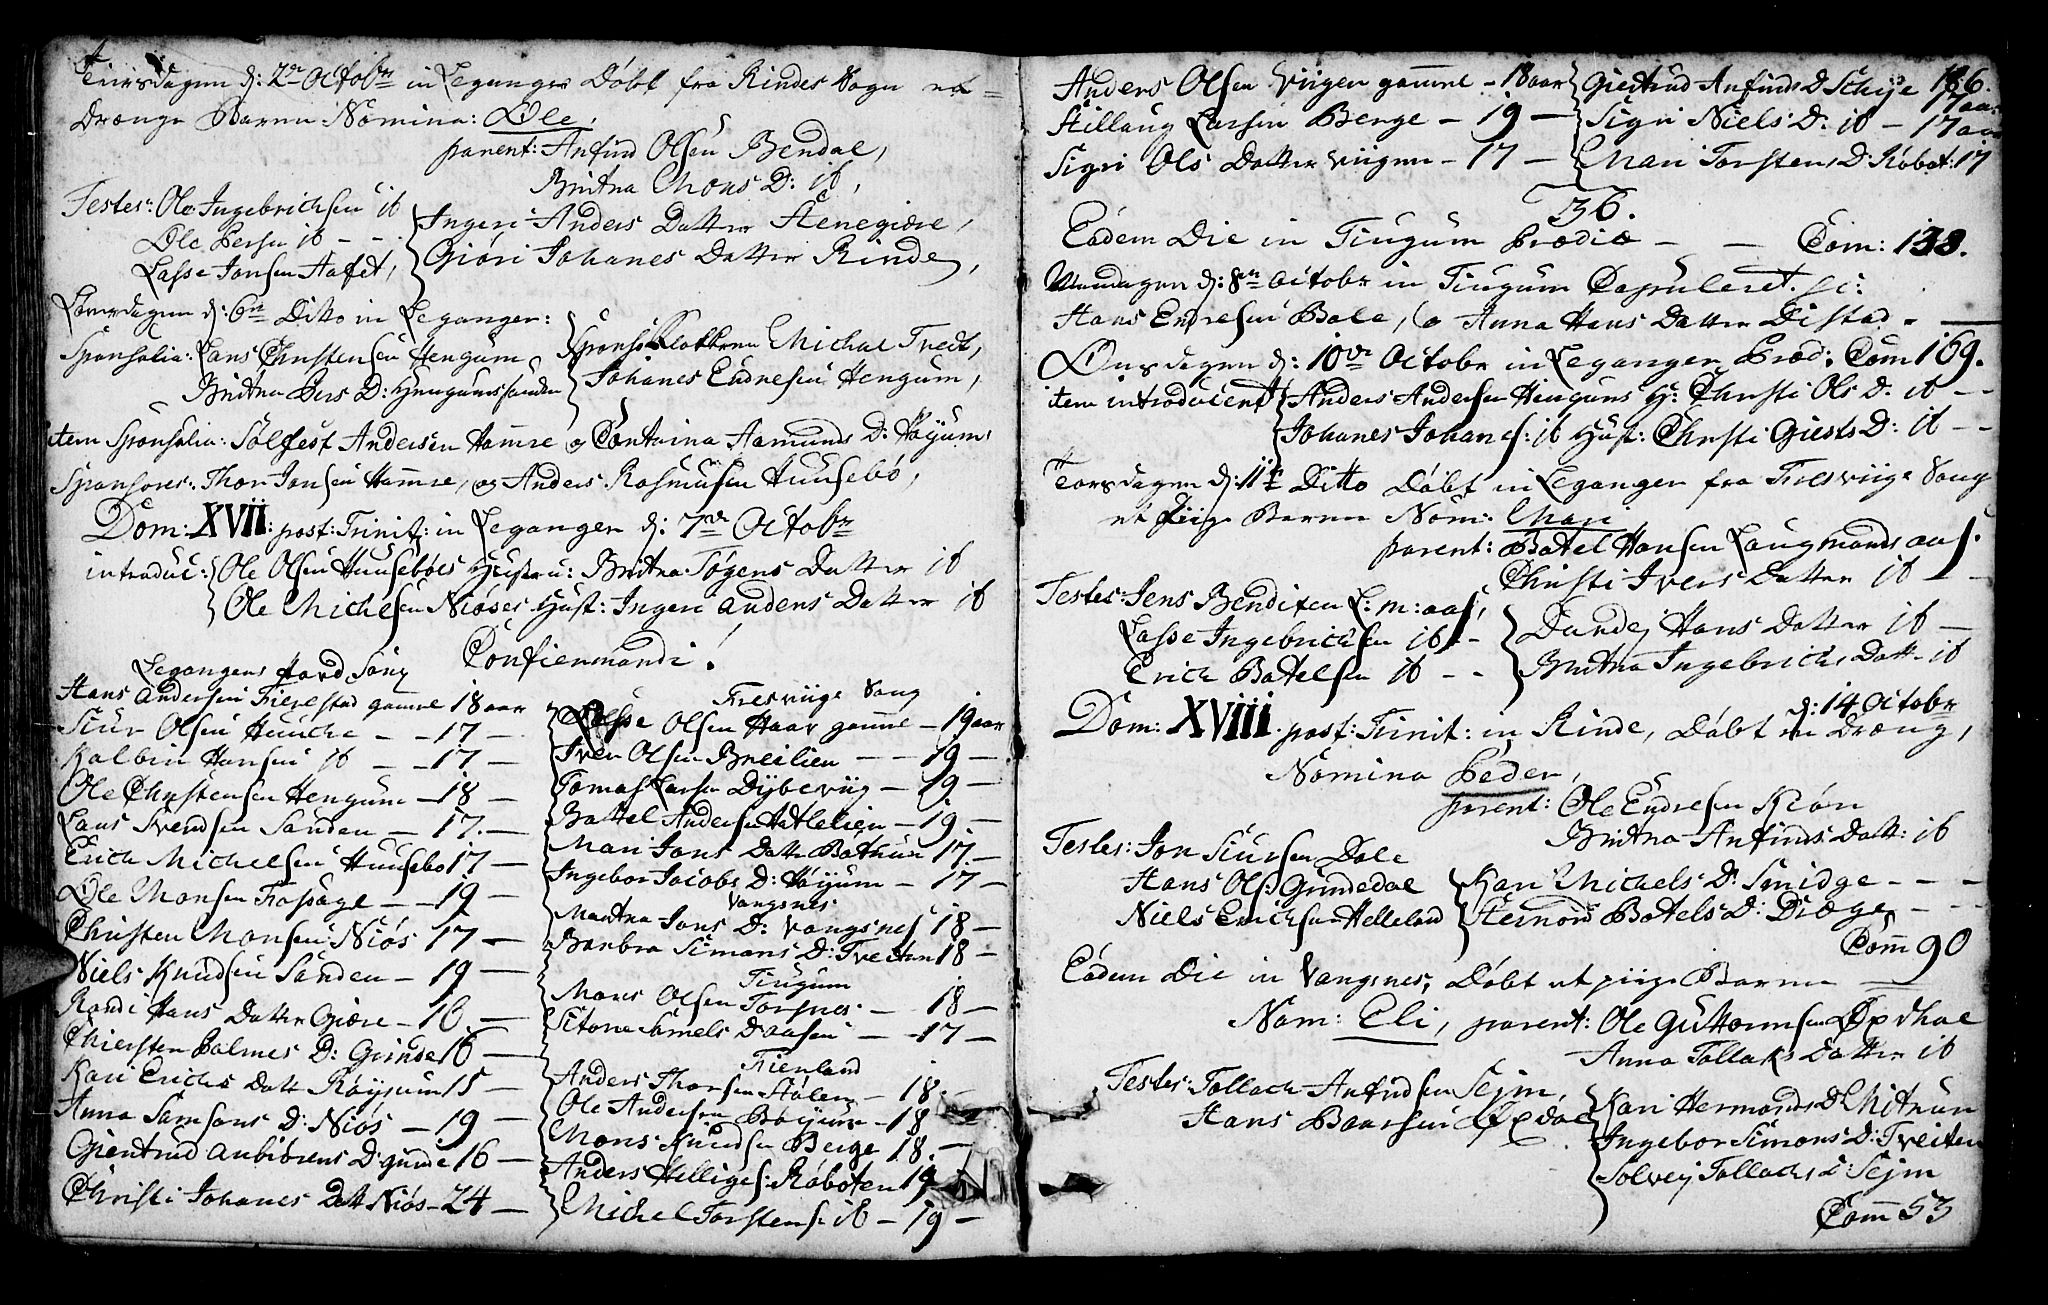 Tiirsdagen d: 2den Octobr in Leganger Døbt fra Rindes Sogn et
Drænge Barn Nomina: Ole,
parent: Anfind Olsen Bendal,
Britha Mons D: ib,
Testes: Ole Ingebrichsen ib
Ole Persen ib - -
Lasse Jonsen Aafet,
Ingeri Anders Datter Stenegiære,
Giøri Johanes Datter Rinde,
Løwerdagen d: 6te Ditto in Leganger:
Sponsalia: Lars Christensen Hengum
Britha Pers D: Hengumssanden
Spons: Klokkeren Michal Tvedt,
Johanes Endresen Hengum,
item Sponsalia: Sølfest Andersen Hamre og Contarina Aamunds D: Røysum
Sponsores: Thor Jonsen Hamre, og Anders Rasmusen Huusebø,
Dom: XVII: post: Trinit: in Leganger d: 7de Octobr
introduc: Ole Olsen Huusebøes Hustru: Britha Tøgens Datter ib
Ole Michelsen Niøses Hust: Ingeri Anders Datter ib
Confirmandi!
Legangers Hoved Sogn
Hans Andersen Fierestad gamle 18 aar
Siur Olsen Huuche - - 17 -
Kolbin Hansen ib - - 17 -
Ole Christensen Hengum - 18 -
Lars Svendsen Sanden - 17 -
Erich Michelsen Huusebø 17 -
Ole Monsen Fossøge - - 19 -
Christen Monsen Niøs 17 -
Niels Knudsen Sanden - 19 -
Randi Hans Datter Giære - 16 -
Chiersten Palmes D: Grinde 16 -
Kari Erichs Datt Røysum 15 -
Anna Samsons D: Niøs - 19 -
Giertrud Anbiørens D: Grinde 16 -
Christi Johanes Datt Niøs - 24 -
Fresviige Sogn
Lasse Olsen Haar gamle - 19 aar
Iver Olsen Breilien - - 19 -
Tomas Larsen Dybeviig - 19 -
Battel Andersen Hatlelien - 19 -
Mari Jons Datter Botnen 17 -
Ingebor Jacobs D: Røysum - 17 -
Vangsnes
Martha Jons D: Vangsnes 18 -
Barbra Simons D: Tveiten 18 -
Tiugum
Mons Olsen Torsnes - 18 -
Sitona Samels D Aasen - 17 -
Fienland
Anders Thorsen Stølen - 18 -
Ole Andersen Bøyum - 18
Mons Knudsen Berge 18 -
Anders Helliges: Røboten 19
Michel Torstens: ib - 19 -
186.
Anders Olsen Viigen gamle - 18 aar
Stillaug Larsen Berge - 19 -
Sigri Ols Datter Viigen - 17 -
Giertrud Anfinds D Schye 17 aar
Sigri Niels D: ib - 17 aar
Mari Torstens D: Røbot: 17
36.
Eodem Die in Tiugum Prædic - - Com: 138.
Mandagen d: 8de Octobr in Tiugum Copuleret. sc:
Hans Endresen Bale, & Anna Hans Datter Distad -
Onsdagen d: 10de Octobr in Leganger Præd: Com 169.
item introducient Anders Andersen Hengums H: Christi Ols D. ib - -
Johanes Johanes: ib Hust: Christi Giests D: ib - -
Torsdagen d: 11te Ditto Døbt in Leganger fra Fresviige Sogn
et Piige Barn Nom: Mari
parent: Batel Hansen Laugmands aas.
Christi Ivers Datter ib - -
Testes: Jens Bendixen L: m: aas,
Lasse Ingebrichsen ib - -
Erich Batelsen ib - -
Durdej Hans Datter ib -
Britha Ingebrichs Datt ib
Dom: XVIII. post: Trinit: in Rinde, d: 14 Octobr Døbt en Dræng,
Nomina Peder,
parent: Ole Endresen Kiøri
Britha Anfinds Datt: ib
Testes: Jon Siursen Dale
Hans Ols: Grindedal
Niels Erichsen Helleland
Kari Michels D: Smidge - - -
Steinøri Botels D: Dræge - -
Com 90
Eodem Die in Vangsnes, Døbt et piige Barn
Nom: Eli, parent: Ole Guttormsen Opdhal
Anna Tollaks Datter ib
Testes: Tollach Anfindsen Sejm,
Hans Baarsen Opdal
Kari Hermands D Mithun
Ingebor Simons D: Tveiten
Solvej Tollachs D: Sejm
Com 53